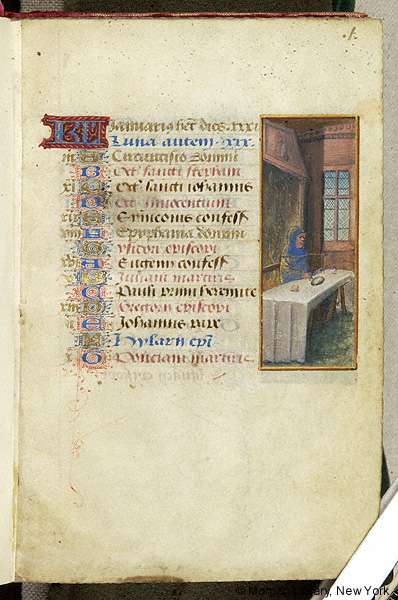 .1.
KL Januarius h̄t dies. xxxi
Luna autem. xxx.
iii A Circūcisio domini
b Oct̄ sancti stephani
xi c Oct̄ sancti iohannis
d Oct̄ innocentum
xix e Symeonis confess̄
viii f Epyphania domini
g episcopi
xvi A confess̄
v b Juliani martiris
c Pauli primi heremite
xiii d episcopi
ii e Johannis pape
f Hylarii ep̄i
x g martiris
© Morgan Library, New York